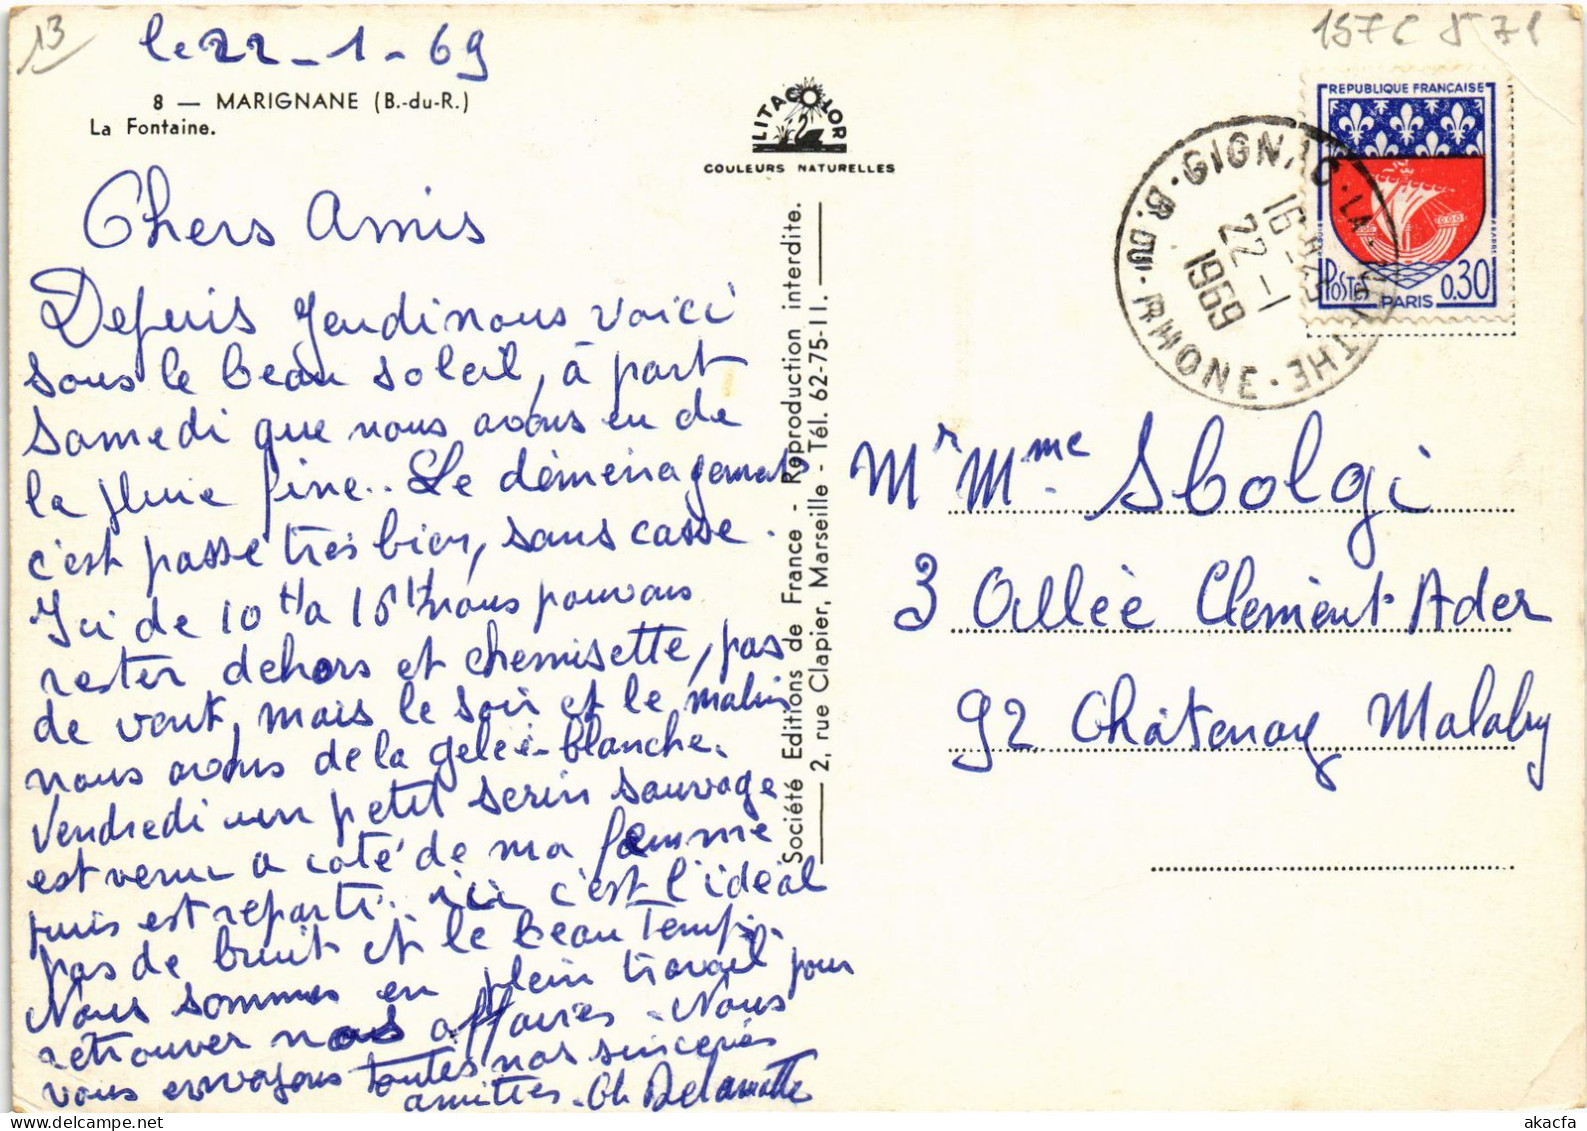 13
le 22-1-69
157C 571
8 — MARIGNANE (B.-du-R.)
La Fontaine.
LITACOLOR
COULEURS NATURELLES
REPUBLIQUE FRANÇAISE
POSTES PARIS 0,30
GIGNAC-LA-NERTHE
B. DU RHONE
16 H25
22-1
1969
Chers Amis
Depuis Jeudi nous voici
sous le beau soleil, à part
Samedi que nous avons eu de
la pluie fine.. Le démenagement
c'est passé très bien, sans casse.
Ici de 10H a 16H nous pouvons
rester dehors et chemisette, pas
de vent, mais le soir et le matin
nous avons de la gelée-blanche.
Vendredi un petit serin sauvage
est venu a coté de ma femme
puis est reparti. ici c'est l'idéal
pas de bruit et le beau Temps.
Nous sommes en plein travail pour
retrouver nos affaires. Nous
vous envoyons toutes nos sincères
amitiés. Ch Delamotte
Société Editions de France - Reproduction interdite.
2, rue Clapier, Marseille - Tél. 62-75-11.
Mr Mme Sbolgi
3 Allée Clement Ader
92 Châtenay Malabry
akacfa
www.delcampe.net